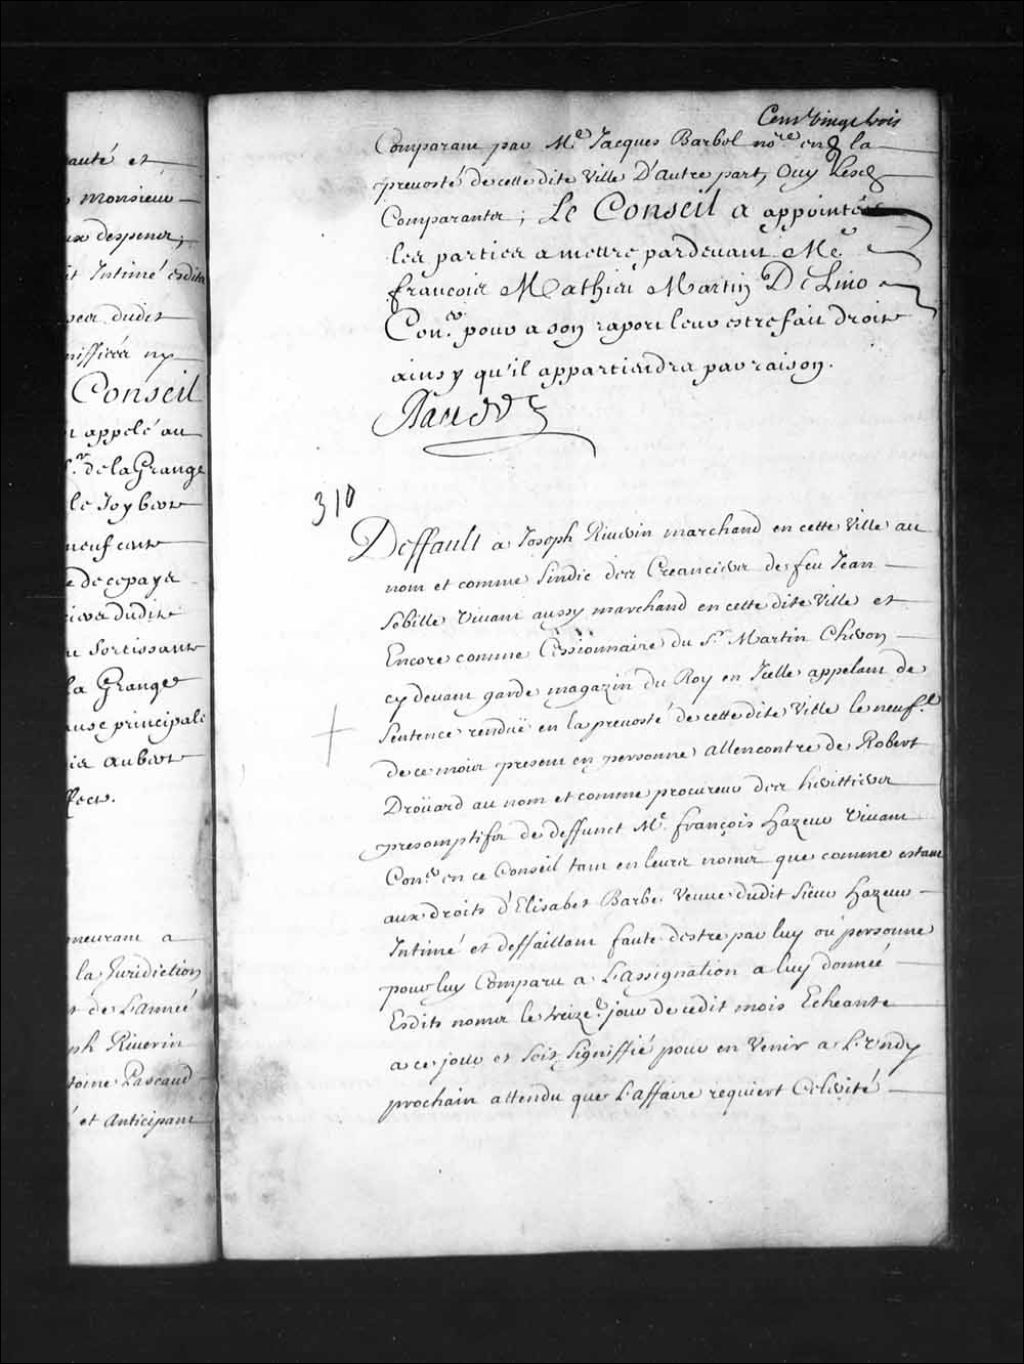 auté et
monsieur
ux despens,
it Intimé esdits
dudit
niffiées ny
Conseil
appelé au
de la Grange
le Joybert
neuf cent
de ce pays
dudit
sortissant
la Grange
ause principale
Aubert
ffect.
meurant a
la Juridiction
de L'année
ph Riverin
toine Pascaud
et anticipant
Cent vingt trois
Comparant par Me. Jacques Barbel nore. en la
prevosté de cette dite Ville D'autre part, Ouy Lesd.
Comparantes; Le Conseil a appointé
les parties a mettre pardevant Me.
françois Mathieu Martin De Lino
Conr. pour a son raport leur estre fait droit
ainsy qu'il appartiendra par raison.
310
Deffault a Joseph Riverin marchand en cette Ville au
nom et comme sindic des Creanciers de feu Jean
Sebille Vivant aussy marchand en cette dite Ville et
Encore comme Cessionnaire du Sr. Martin Cheron
cy devant garde magazin du Roy en Icelle appelant de
Sentence renduë en la prevosté de cette dite Ville le neufe.
de ce mois present en personne allencontre de Robert
Droüard au nom et comme procureur des heritiers
presomptifs de deffunct Me. françois hazeur Vivant
Conr. en ce Conseil tant en leurs noms que comme estant
aux droits d'Elisabet Barbe Veuve dudit Sieur hazeur
Intimé et deffaillant faute destre par luy ou personne
pour luy Comparu a L'assignation a luy donnée
Esdits noms le treize. jour de cedit mois Echeante
a ce jour et soit signiffié pour en Venir a Lundy
prochain attendu que L'affaire requiert Celerité